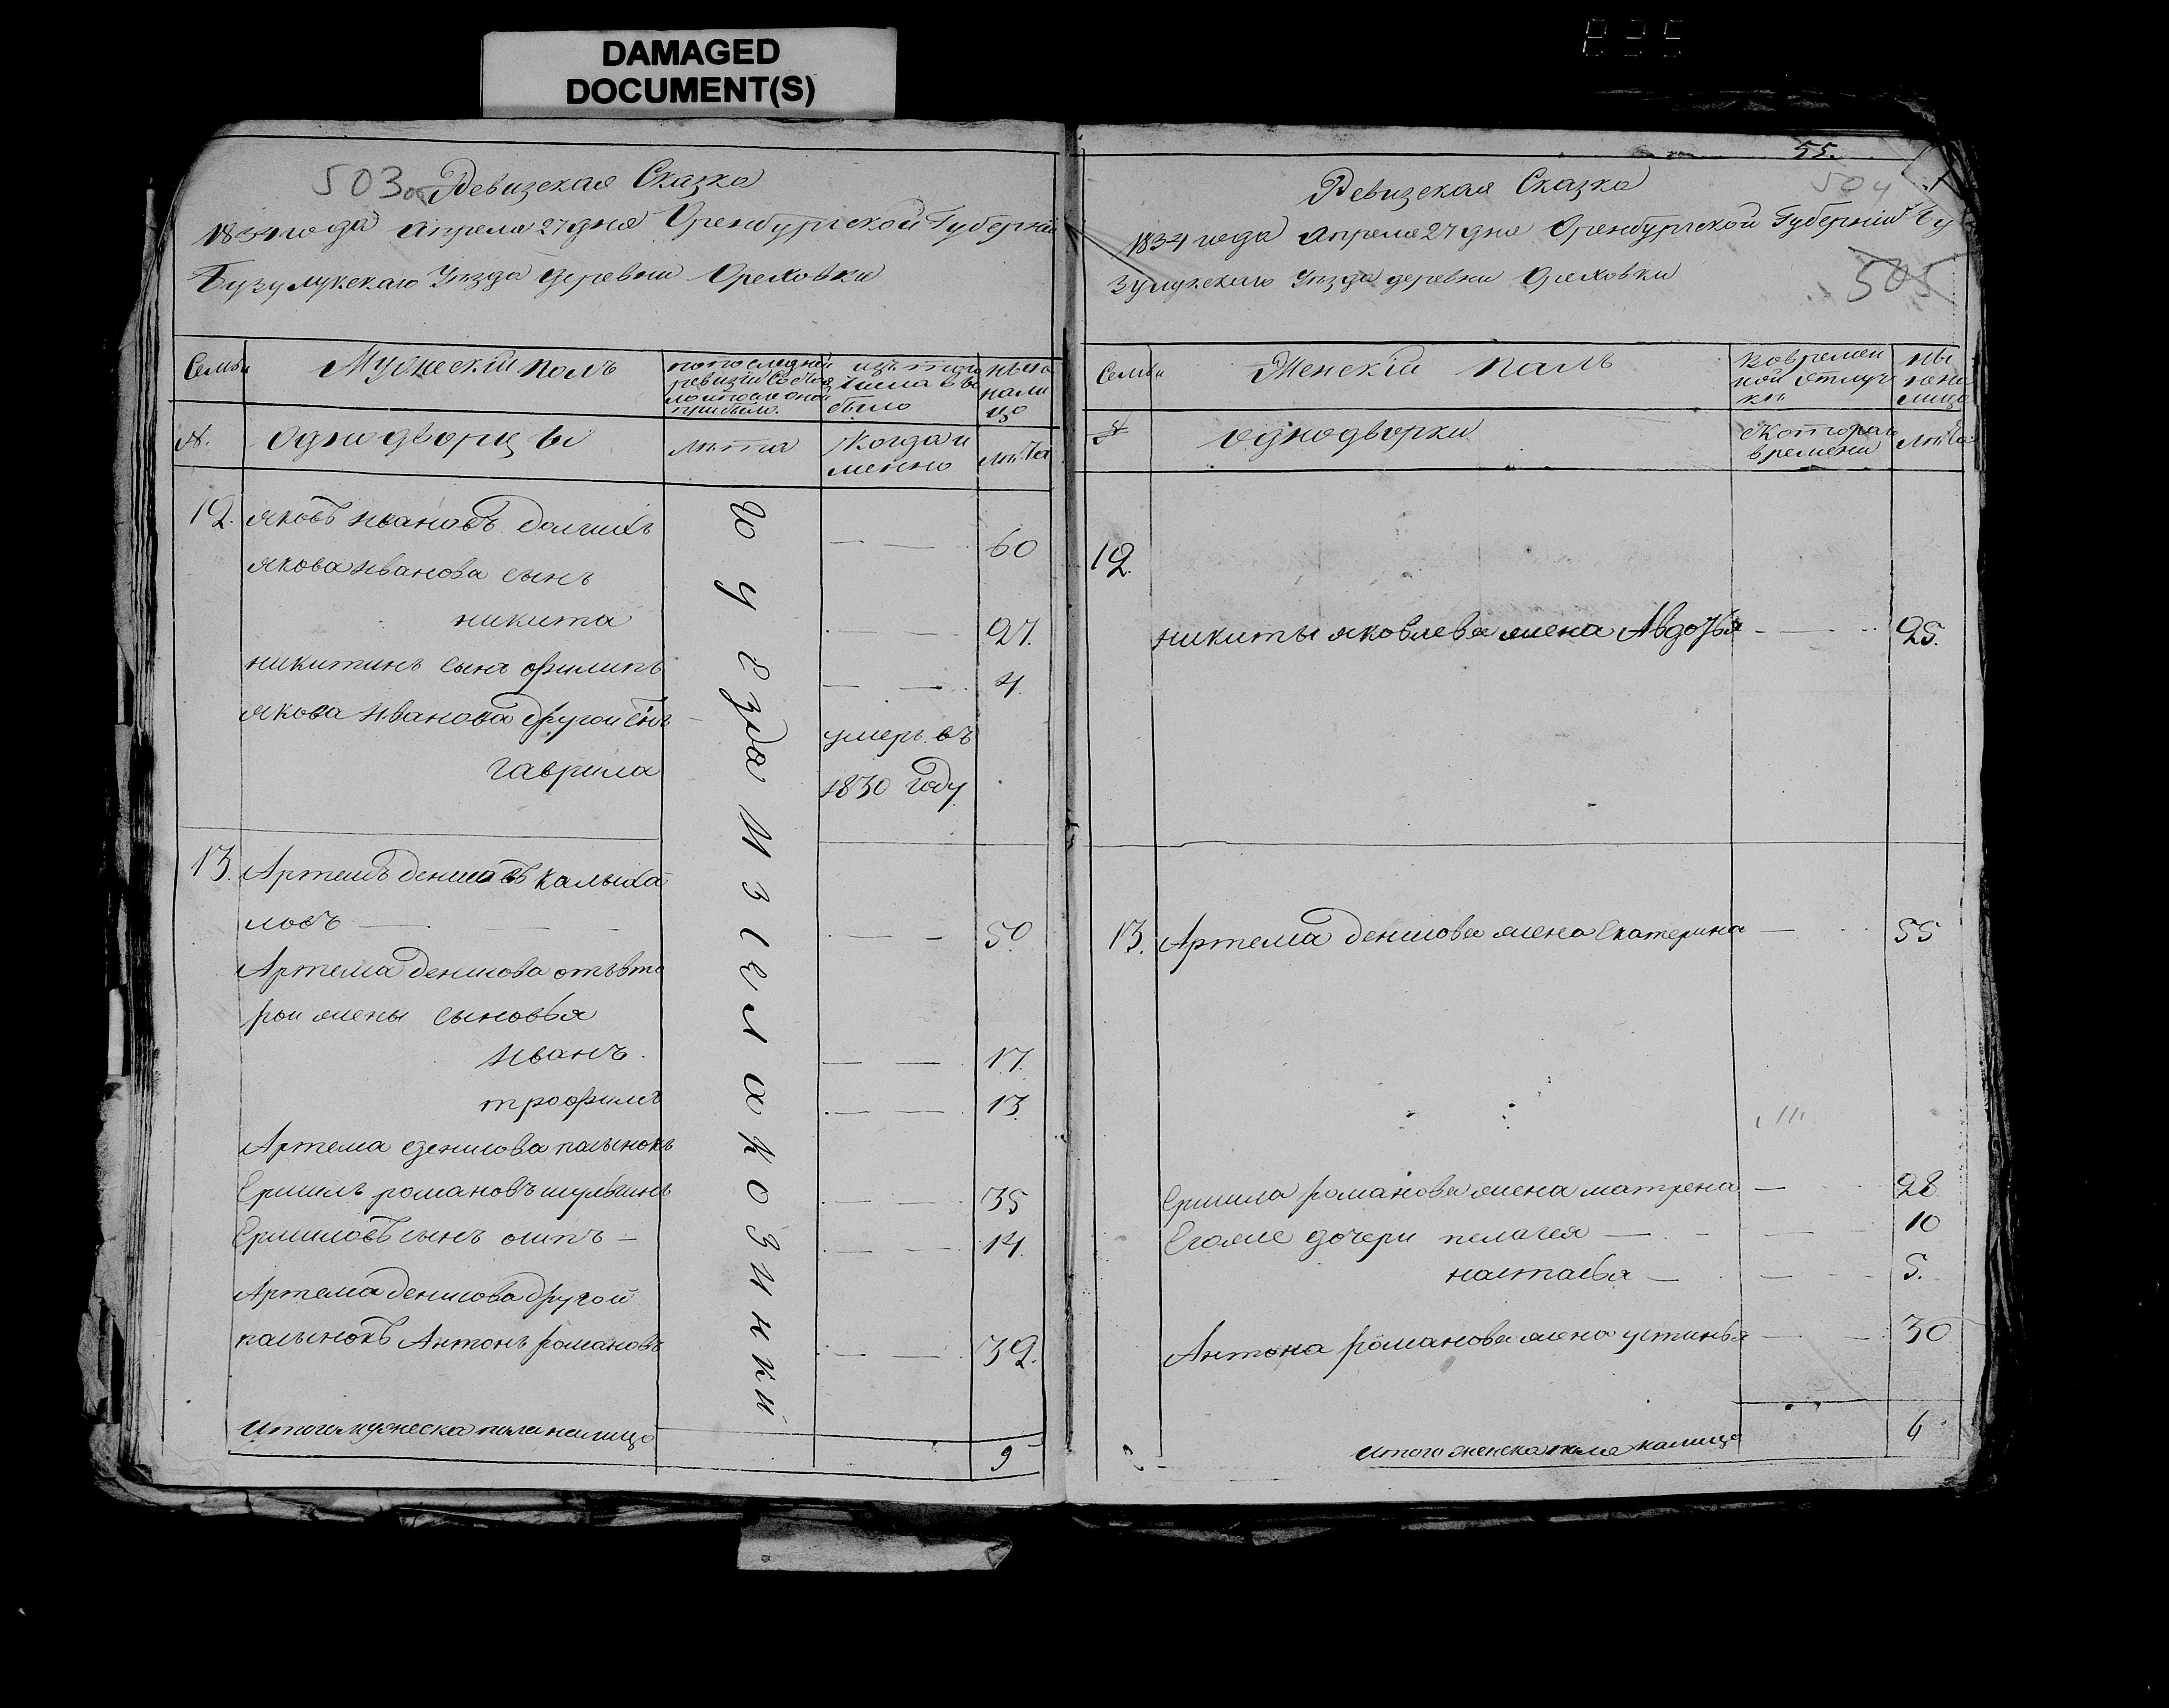 DAMAGED
DOCUMENT(S)
503об
Ревизская Сказка
1834 года Апреля 27 дня Оренбургской Губерніи
Бузулукскаго Уезда деревни Ореховки
Семьи
Мужескій полъ
попоследней ревизіи состояло и после оной прибыло.
изъ того числа выбыло
ныне на лицо
№.
Однодворцы
Лета
Когда именно
Лета
12. яковъ ивановъ Долгихъ 60
якова иванова сынъ
никита 27.
никитинъ сынъ филипъ 4.
якова иванова другой сынъ умеръ въ
гаврила 1830 году
уезда из села козинки
13. Артемъ денисовъ калыха
ловъ 50.
Артема денисова отъ вто
рой жены сыновья
иванъ. 17.
трофимъ 13.
Артема денисова пасынокъ
Ермилъ романовъ 35
Ермиловъ сынъ осипъ 14.
Артема денисова другой
пасынокъ Антонъ романовъ 32.
Итого мужеска пола налицо 9
55.
504
Ревизская Сказка
1834 года Апреля 27 дня Оренбургской Губерніи Бу
зулукскаго Уезда деревни Ореховки
505
Семьи
Женскій полъ
во временной отлучки
ныне на лицо
№
однодворки
С котораго времени
Лета
12.
никиты яковлева жена Авдотья 25.
13. Артема денисова жена Екатерина 55
Ермила романова жена матрена 28
Егоже дочери пелагея 10
настасья 5.
Антона романова жена устинья 30
Итого женска пола налицо 6